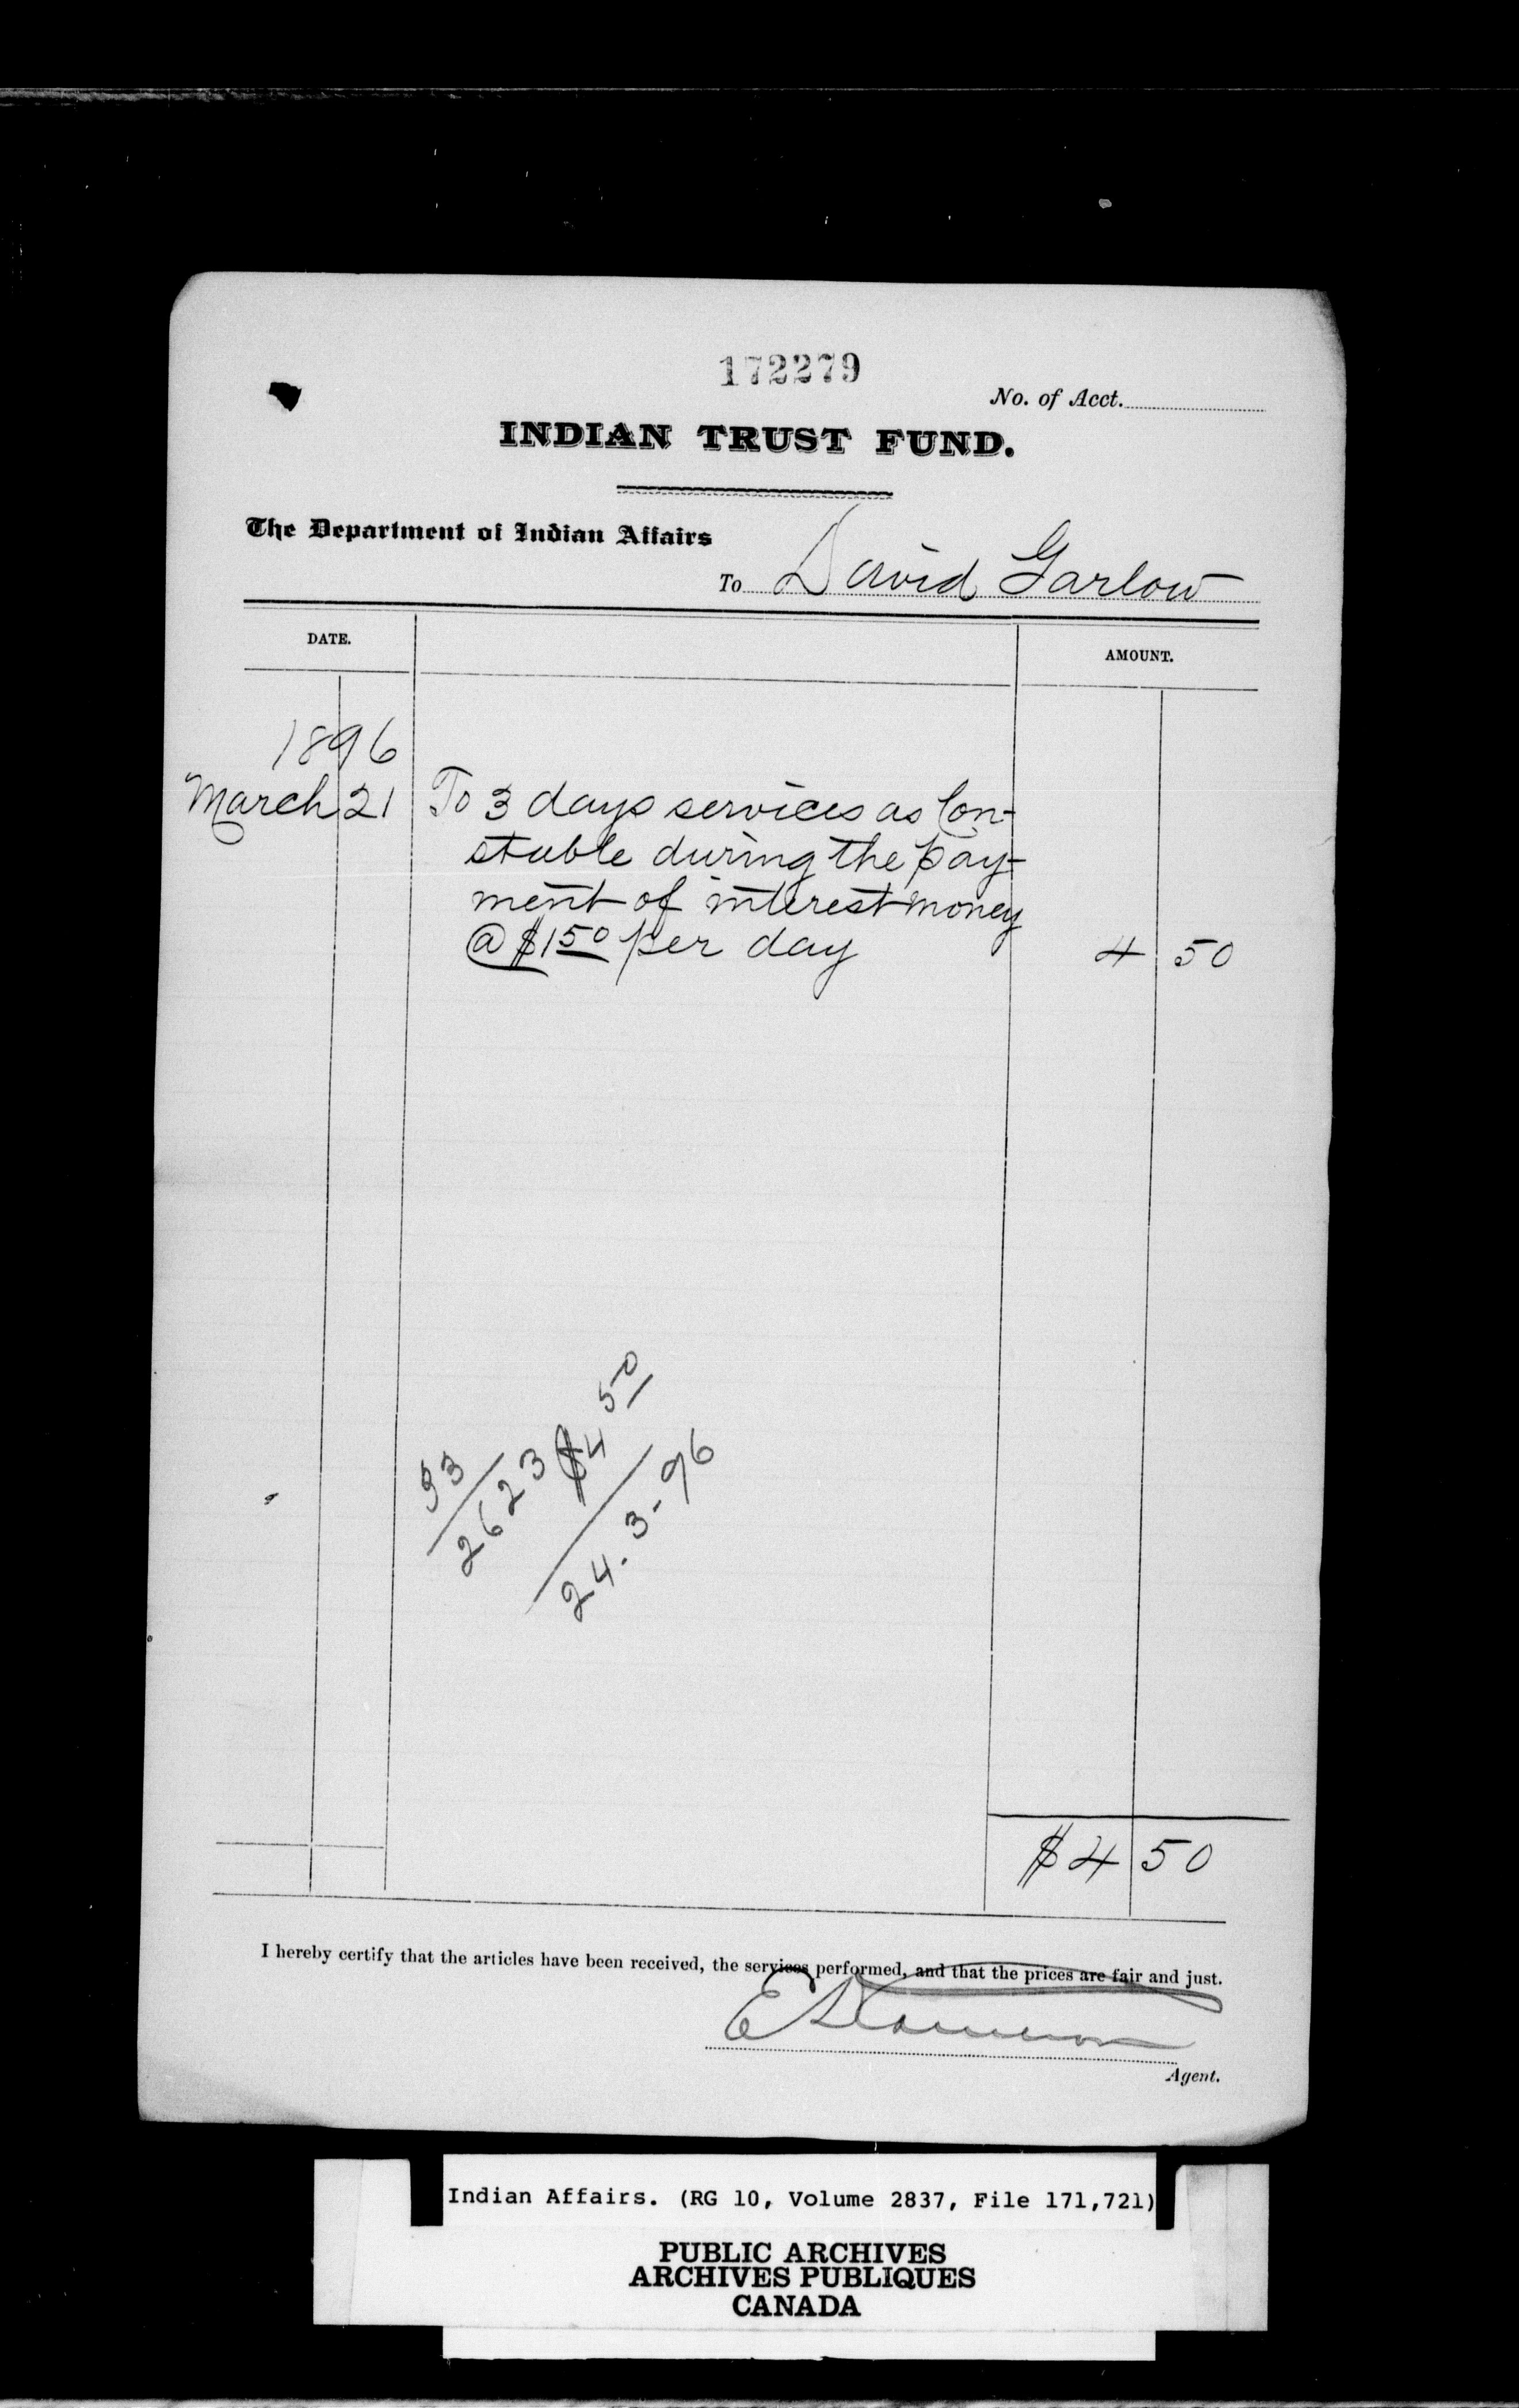 172279
No. of Acct.
INDIAN TRUST FUND.
The Department of Indian Affairs
To David Garlow
DATE. AMOUNT.
1896
March 21 To 3 days services as Con-
stable during the pay-
ment of interest money
@ $1 50 per day 4 50
33
2623 $4 50
24.3-96
$4 50
I hereby certify that the articles have been received, the services performed, and that the prices are fair and just.
E D Cameron
Agent.
Indian Affairs. (RG 10, Volume 2837, File 171,721)
PUBLIC ARCHIVES
ARCHIVES PUBLIQUES
CANADA